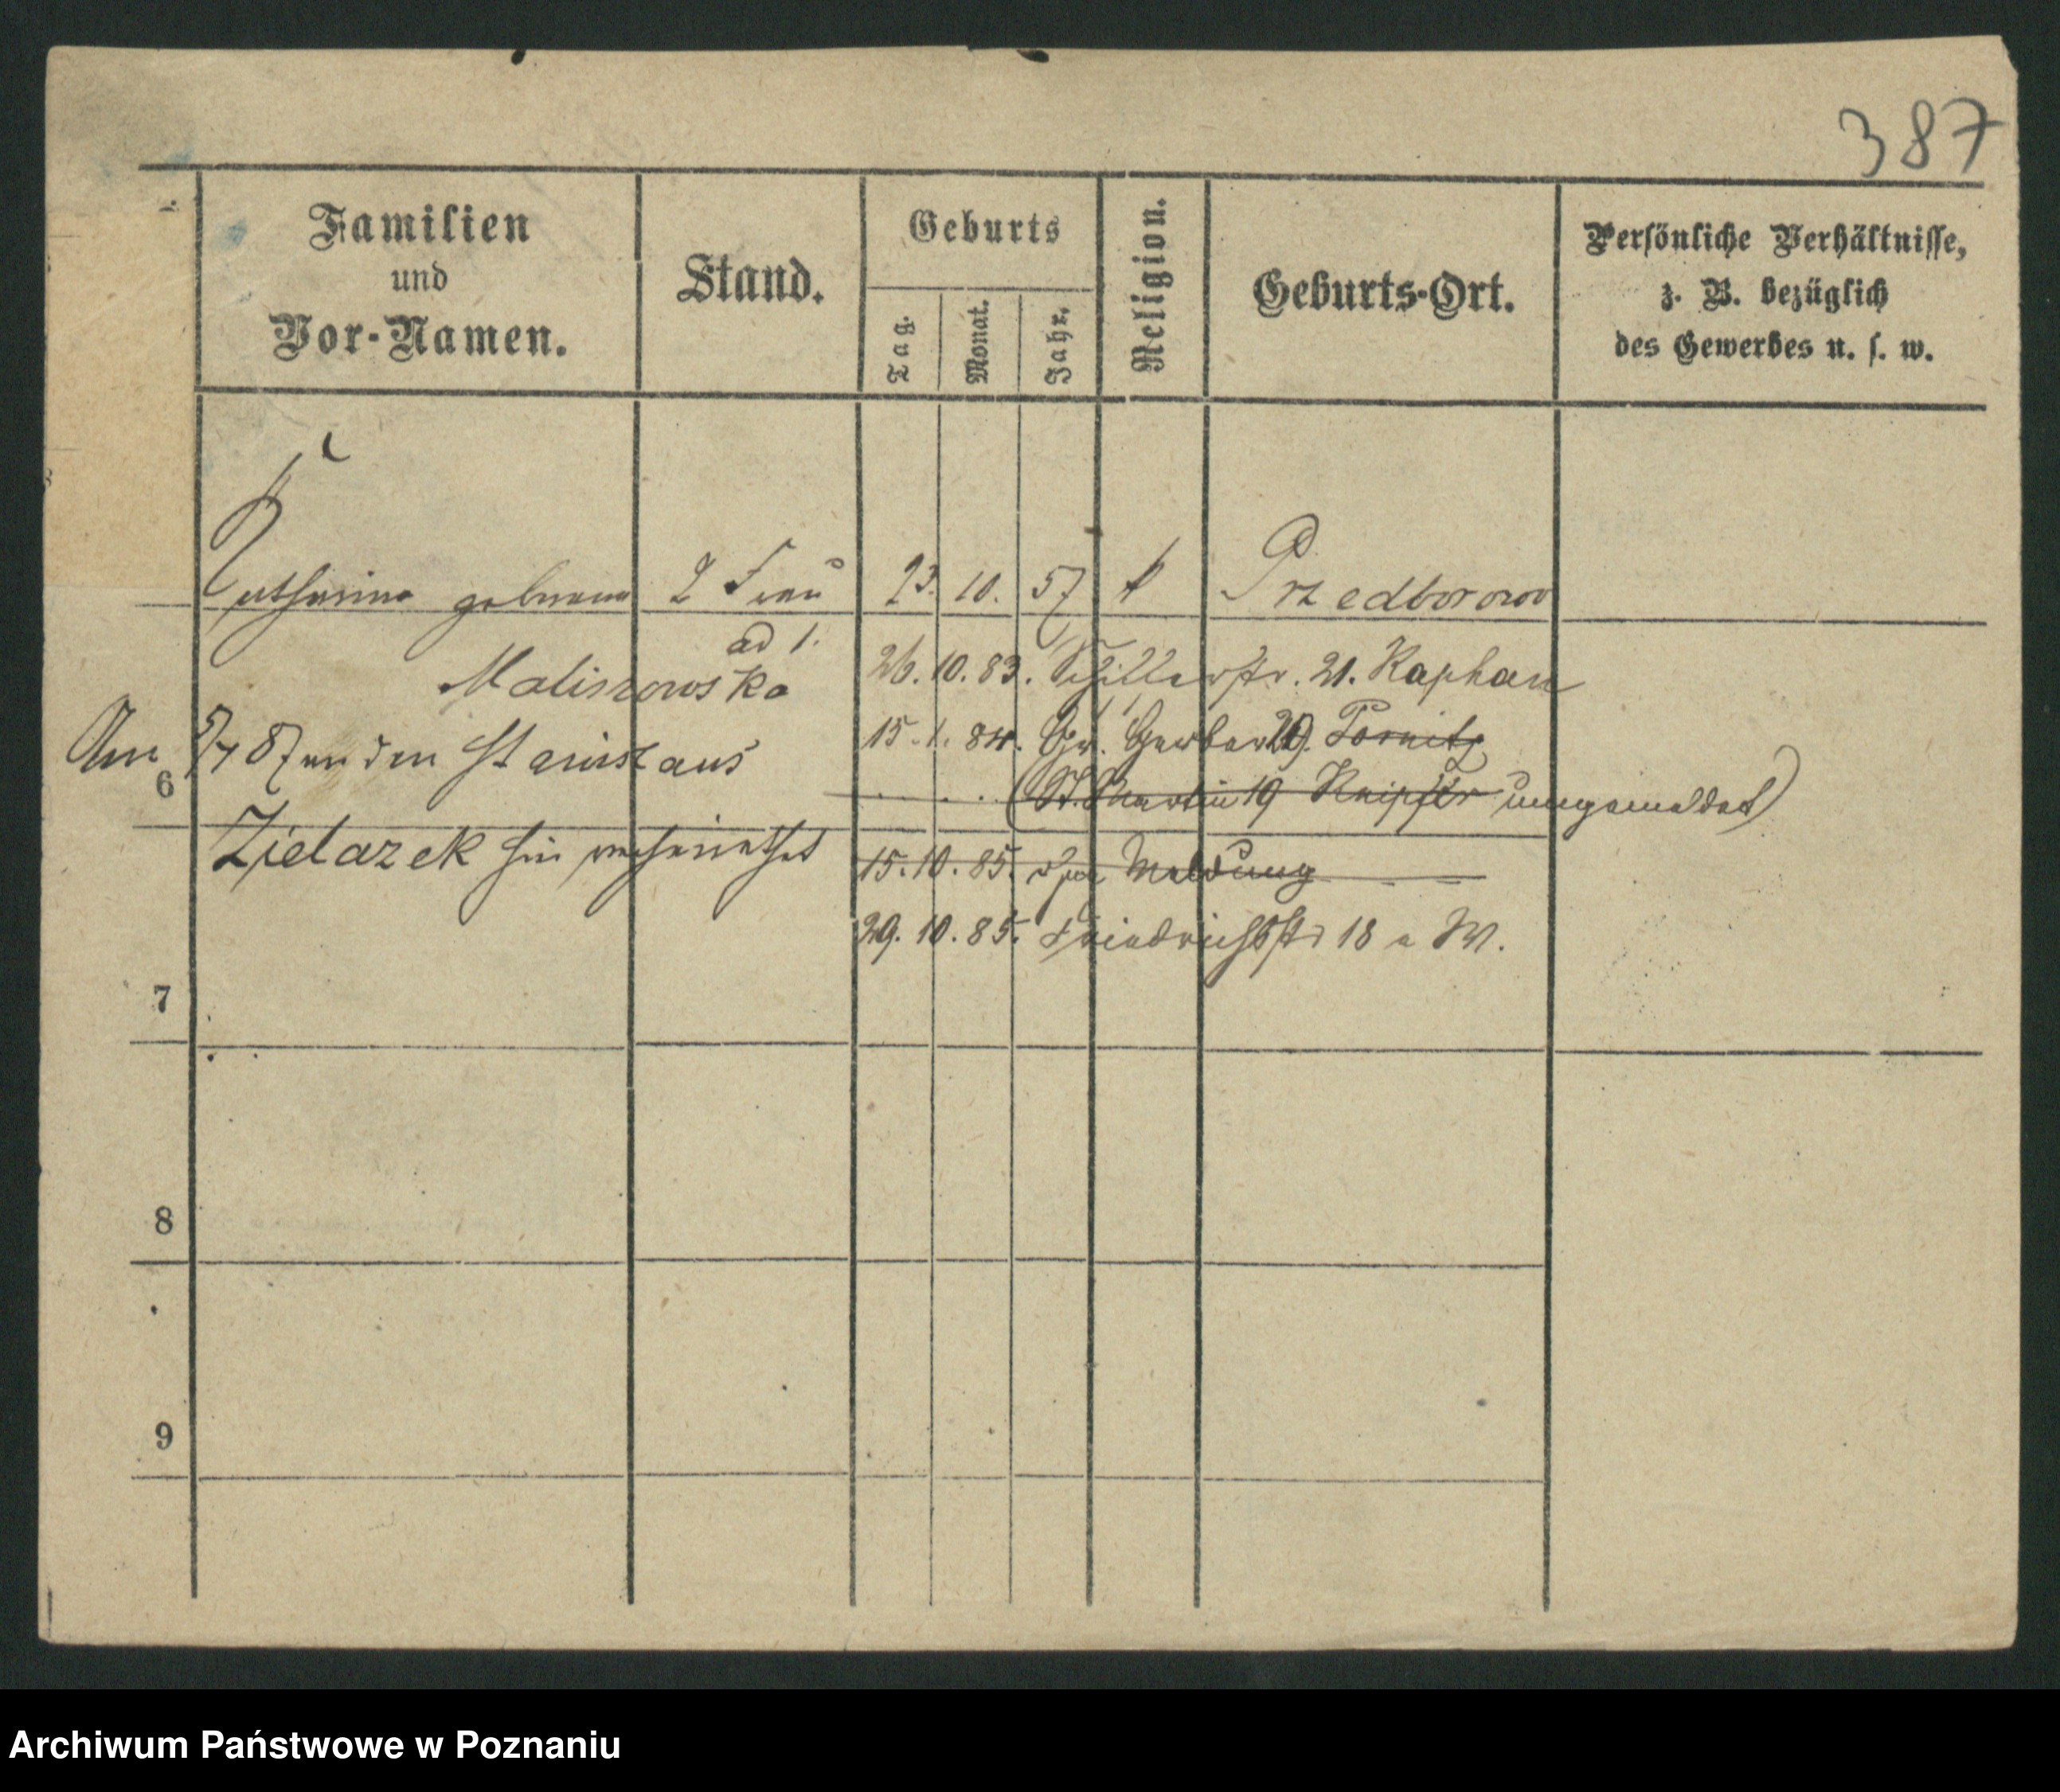 387
Familien
und
Vor-Namen.
Stand.
Geburts
Tag.
Monat.
Jahr.
Religion.
Geburts-Ort.
Persönliche Verhältnisse,
z. B. bezüglich
des Gewerbes u. s. w.
Catharina geborene 2 Frau 23. 10. 57 k Przedborowo
ad 1.
Maliszowska
26. 10. 83. Schillerstr. 21. Kaphan
Am 5/7 87 an den Stanislaus
15. 1. 84. Gr. Gerber 20. Pornitz
6
(St. Martin 19 Knipfer umgemeldet)
Zielazek hier verheirathet
15. 10. 85. Meldung
29. 10. 85. Friedrichsstr 18 a W.
7
8
9
Archiwum Państwowe w Poznaniu